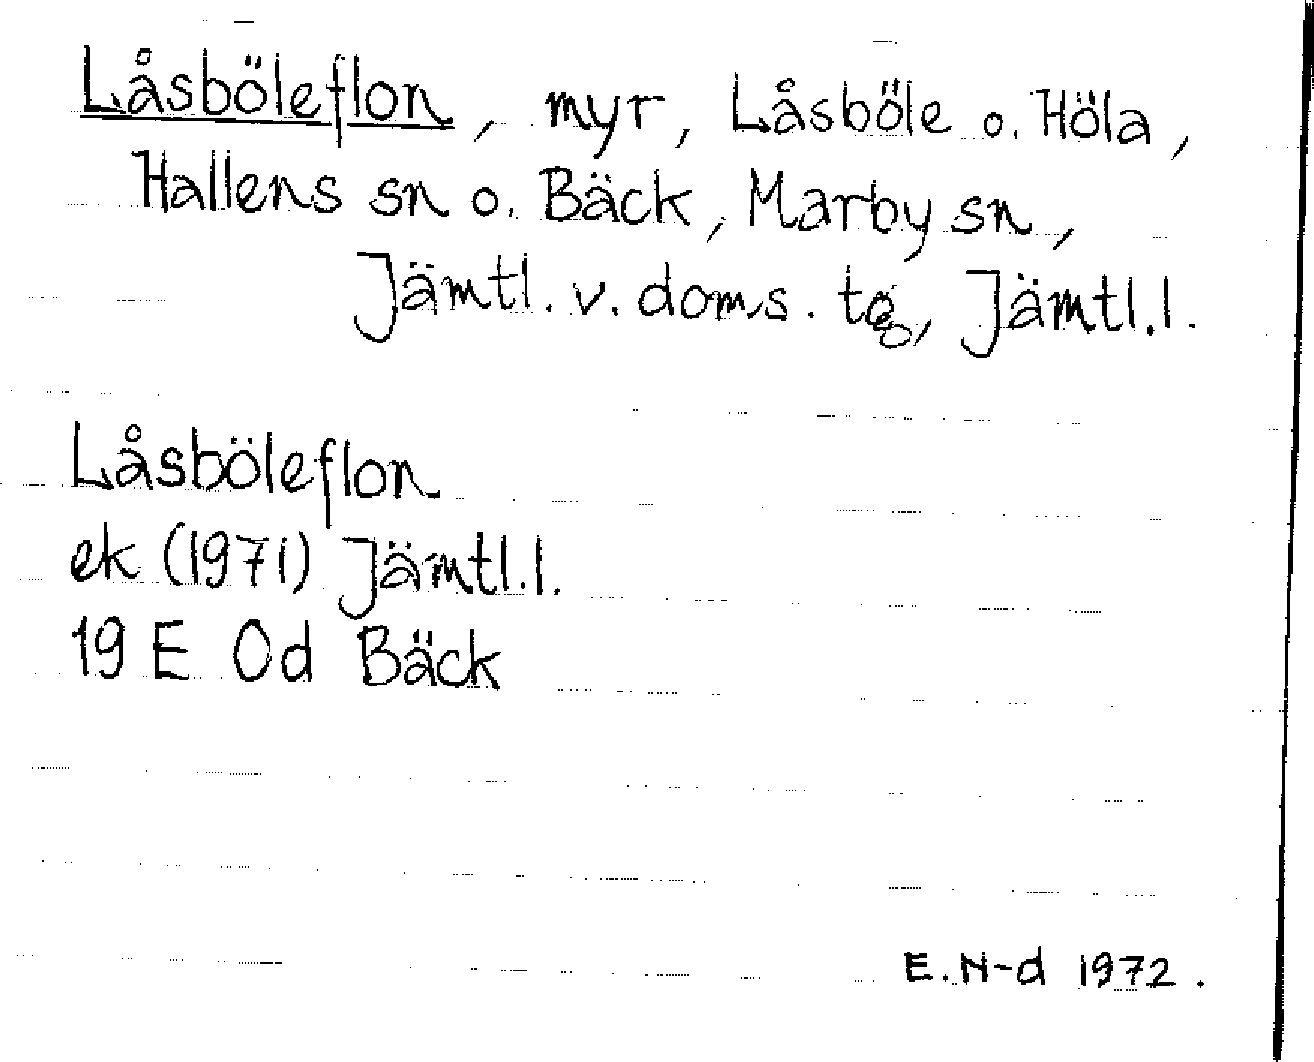 Låsböleflon, myr, Låsböle o. Höla,
Hallens sn o. Bäck, Marby sn,
Jämtl. v. doms. tg, Jämtl.l.
Låsböleflon
ek (1971) Jämtl.l.
19 E 0d Bäck
E.N-d 1972.